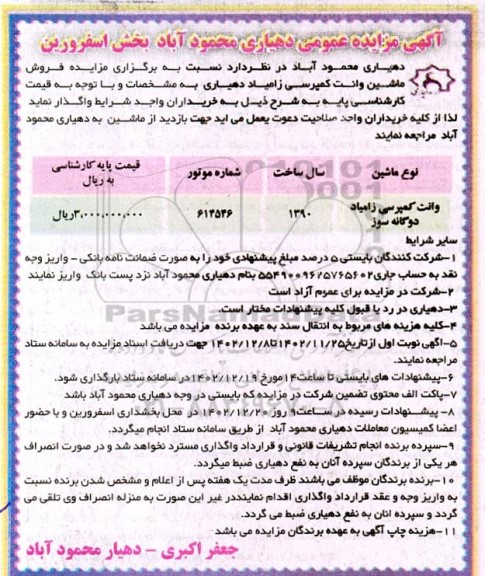 آگهی مزایده عمومی دهیاری محمود آباد بخش اسفرورین
دهیاری محمود آباد در نظردارد نسبت به برگزاری مزایده فروش
ماشین وانت کمپرسی زامیاد دهیاری به مشخصات و با توجه به قیمت
کارشناسی پایه به شرح ذیل به خریداران واجد شرایط واگذار نماید
لذا از کلیه خریداران واجد صلاحیت دعوت بعمل می آید جهت بازدید از ماشین به دهیاری محمود
آباد مراجعه نمایند
نوع ماشین سال ساخت شماره موتور قیمت پایه کارشناسی
به ریال
وانت کمپرسی زامیاد
دوگانه سوز ۱۳۹۰ ۶۱۴۵۴۶ ۳،۰۰۰،۰۰۰،۰۰۰ریال
سایر شرایط
۱-شرکت کنندگان بایستی ۵ درصد مبلغ پیشنهادی خود را به صورت ضمانت نامه بانکی - واریز وجه
نقد به حساب جاری ۵۵۴۹۰۰۹۶۲۵۷۶۵۶۰۲ بنام دهیاری محمود آباد نزد پست بانک واریز نمایند
۲-شرکت در مزایده برای عموم آزاد است
۳-دهیاری در رد یا قبول کلیه پیشنهادات مختار است.
۴-کلیه هزینه های مربوط به انتقال سند به عهده برنده مزایده می باشد
۵-آگهی نوبت اول از تاریخ ۱۴۰۲/۱۱/۲۵ تا ۱۴۰۲/۱۲/۸ جهت دریافت اسناد مزایده به سامانه ستاد
مراجعه نمایند.
۶-پیشنهادات های بایستی تا ساعت ۱۴ مورخ ۱۴۰۲/۱۲/۱۹ در سامانه ستاد بارگذاری شود.
۷-پاکت الف محتوی تضمین شرکت در مزایده که بایستی در وجه دهیاری محمود آباد باشد
۸- پیشنهادات رسیده در ساعت ۹ روز ۱۴۰۲/۱۲/۲۰ در محل بخشداری اسفرورین و با حضور
اعضا کمیسیون معاملات دهیاری محمود آباد از طریق سامانه ستاد انجام میگردد.
۹-سپرده برنده انجام تشریفات قانونی و قرارداد واگذاری مسترد نخواهد شد و در صورت انصراف
هر یکی از برندگان سپرده آنان به نفع دهیاری ضبط میگردد.
۱۰-برنده برندگان موظف می باشند ظرف مدت یک هفته پس از اعلام و مشخص شدن برنده نسبت
به واریز وجه و عقد قرارداد واگذاری اقدام نمایند در غیر این صورت به منزله انصراف وی تلقی می
گردد و سپرده آنان به نفع دهیاری ضبط می گردد.
۱۱-هزینه چاپ آگهی به عهده برندگان مزایده می باشد
جعفر اکبری - دهیار محمود آباد